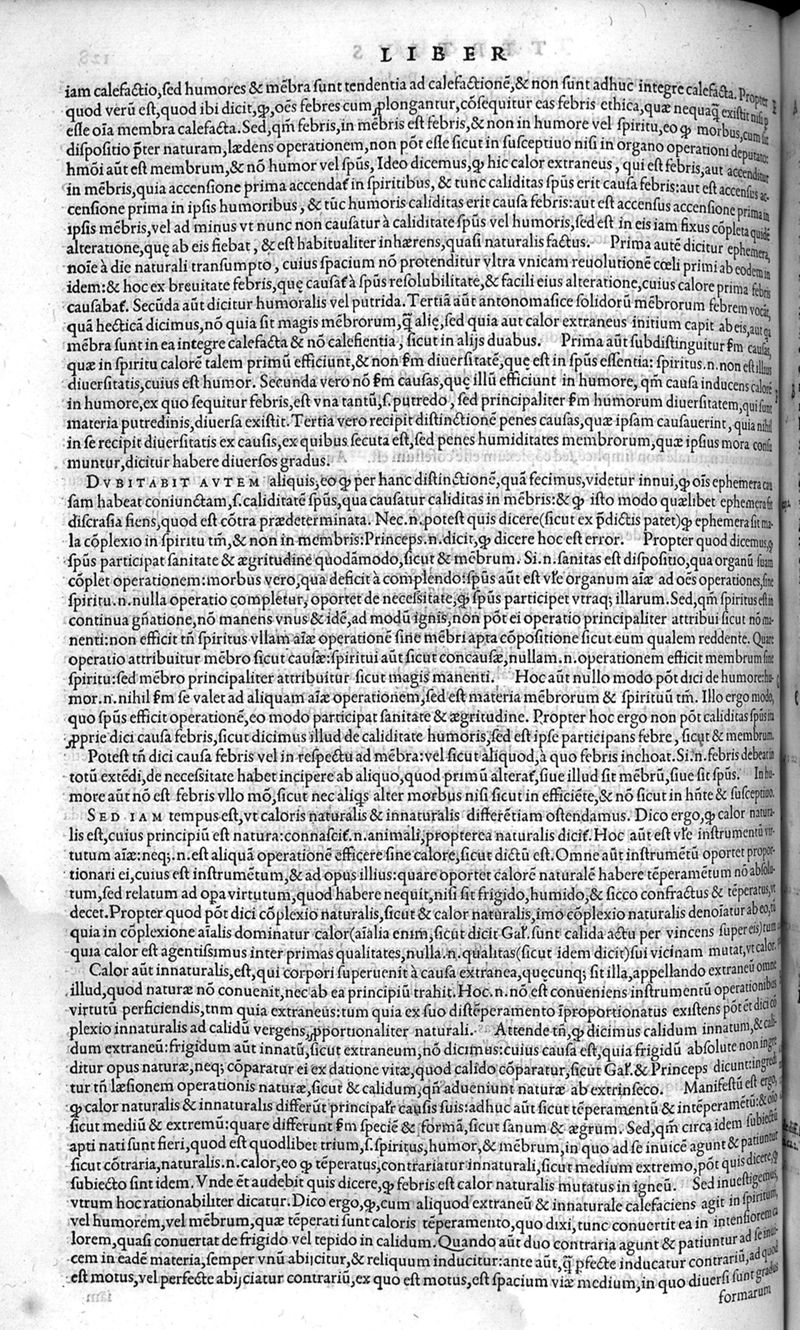 LIBER
iam calefactio, sed humores & mēbra sunt tendentia ad calefactionē, & non sunt adhuc integre calefacta. Propter
quod verū est, quod ibi dicit, ꝙ, oēs febres cum ꝓlongantur, cōsequitur eas febris ethica, quæ nequaq̄ existit nisi p
esse oīa membra calefacta. Sed, qm̄ febris, in mēbris est febris, & non in humore vel spiritu, eo ꝙ morbus, cum sit
dispositio p̄ter naturam, lædens operationem, non pōt esse sicut in susceptiuo nisi in organo operationi deputato:
hmōi aūt est membrum, & nō humor vel spūs, Ideo dicemus, ꝙ hic calor extraneus, qui est febris, aut accenditur
in mēbris, quia accensione prima accendat̄ in spiritibus, & tunc caliditas spūs erit causa febris: aut est accensus ac-
censione prima in ipsis humoribus, & tūc humoris caliditas erit causa febris: aut est accensus accensione prima in
ipsis mēbris, vel ad minus vt nunc non causatur à caliditate spūs vel humoris, sed est in eis iam fixus cōpleta quidē
alteratione, quę ab eis fiebat, & est habitualiter inhærens, quasi naturalis factus. Prima autē dicitur ephemera,
noīe à die naturali transumpto, cuius spacium nō protenditur vltra vnicam reuolutionē cœli primi ab eodem in
idem: & hoc ex breuitate febris, quę causat̄ à spūs resolubilitate, & facili eius alteratione, cuius calore prima febris
causabat̄. Secūda aūt dicitur humoralis vel putrida. Tertiā aūt antonomasice solidorū mēbrorum febrem vocāt,
quā hecticā dicimus, nō quia sit magis mēbrorum, q̄ alię, sed quia aut calor extraneus initium capit ab eis, aut qa
mēbra sunt in ea integre calefacta & nō calefientia, sicut in alijs duabus. Prima aūt subdistinguitur fm causas,
quæ in spiritu calorē talem primū efficiunt, & non fm diuersitatē, quę est in spūs essentia: spiritus.n.non est illius
diuersitatis, cuius est humor. Secunda vero nō fm causas, quę illū efficiunt in humore, qm̄ causa inducens calorē
in humore, ex quo sequitur febris, est vna tantū, s. putredo, sed principaliter fm humorum diuersitatem, qui sunt
materia putredinis, diuersa existit. Tertia vero recipit distinctionē penes causas, quæ ipsam causauerint, quia nihil
in se recipit diuersitatis ex causis, ex quibus secuta est, sed penes humiditates membrorum, quæ ipsius mora consu
muntur, dicitur habere diuersos gradus.
DVBITABIT AVTEM aliquis, eo ꝙ per hanc distinctionē, quā fecimus, videtur innui, ꝙ oīs ephemera cau
sam habeat coniunctam, s. caliditatē spūs, qua causatur caliditas in mēbris: & ꝙ isto modo quælibet ephemera sit
discrasia fiens, quod est cōtra prædeterminata. Nec.n.potest quis dicere (sicut ex p̄dictis patet) ꝙ ephemera sit ma-
la cōplexio in spiritu tm̄, & non in membris: Princeps.n.dicit, ꝙ dicere hoc est error. Propter quod dicemus, ꝙ
spūs participat sanitate & ægritudine quodāmodo, sicut & mēbrum. Si.n.sanitas est dispositio, qua organū suam
cōplet operationem: morbus vero, qua deficit à complendo: spūs aūt est vl̄e organum aīæ ad oēs operationes, sine
spiritu.n.nulla operatio completur, oportet de necessitate, ꝙ spūs participet vtraq; illarum. Sed, qm̄ spiritus est in
continua gn̄atione, nō manens vnus & idē, ad modū ignis, non pōt ei operatio principaliter attribui sicut nō ma-
nenti: non efficit tn̄ spiritus vllam aīæ operationē sine mēbri apta cōpositione sicut eum qualem reddente. Quare
operatio attribuitur mēbro sicut causæ: spiritui aūt sicut concausæ, nullam.n.operationem efficit membrum sine
spiritu: sed mēbro principaliter attribuitur sicut magis manenti. Hoc aūt nullo modo pōt dici de humore: hu-
mor.n.nihil fm se valet ad aliquam aīæ operationem, sed est materia mēbrorum & spirituū tm̄. Illo ergo modo,
quo spūs efficit operationē, eo modo participat sanitate & ægritudine. Propter hoc ergo non pōt caliditas spūs ita
ꝓprie dici causa febris, sicut dicimus illud de caliditate humoris, sed est ipse participans febre, sicut & membrum.
Potest tn̄ dici causa febris vel in respectu ad mēbra: vel sicut aliquod, à quo febris inchoat. Si.n.febris debeat in
totū extēdi, de necessitate habet incipere ab aliquo, quod primū alterat̄, siue illud sit mēbrū, siue sit spūs. In hu-
more aūt nō est febris vllo mō, sicut nec aliqs alter morbus nisi sicut in efficiēte, & nō sicut in hn̄te & susceptiuo.
SED IAM tempus est, vt caloris naturalis & innaturalis differētiam ostendamus. Dico ergo, ꝙ calor natura-
lis est, cuius principiū est natura: connascit̄.n.animali, propterea naturalis dicit̄. Hoc aūt est vl̄e instrumentū vir-
tutum aīæ: neq;.n.est aliquā operationē efficere sine calore, sicut dictū est. Omne aūt instrumētū oportet propor-
tionari ei, cuius est instrumētum, & ad opus illius: quare oportet calorē naturalē habere tēperamētum nō absolu-
tum, sed relatum ad opa virtutum, quod habere nequit, nisi sit frigido, humido, & sicco confractus & tēperatus, vt
decet. Propter quod pōt dici cōplexio naturalis, sicut & calor naturalis, imo cōplexio naturalis denoīatur ab eo, tū
quia in cōplexione aīalis dominatur calor (aīalia enim, sicut dicit Gal̄. sunt calida actu per vincens super eis) tum
quia calor est agentissimus inter primas qualitates, nulla.n.qualitas (sicut idem dicit) sui vicinam mutat, vt calor.
Calor aūt innaturalis, est, qui corpori superuenit à causa extranea, quęcunq; sit illa, appellando extraneū omne
illud, quod naturæ nō conuenit, nec ab ea principiū trahit. Hoc.n.nō est conueniens instrumentū operationibus
virtutū perficiendis, tnm quia extraneus: tum quia ex suo distēperamento īproportionatus existens pōt ēt dici cō
plexio innaturalis ad calidū vergens, ꝓportionaliter naturali. Attende tn̄, ꝙ dicimus calidum innatum, & cali-
dum extraneū: frigidum aūt innatū, sicut extraneum, nō dicimus: cuius causa est, quia frigidū absolute non ingre
ditur opus naturæ, neq; cōparatur ei ex datione vitæ, quod calido cōparatur, sicut Gal̄. & Princeps dicunt: ingredi
tur tn̄ læsionem operationis naturæ, sicut & calidum, qn̄ adueniunt naturæ ab extrinseco. Manifestū est ergo,
ꝙ calor naturalis & innaturalis differūt principalr̄ causis suis: adhuc aūt sicut tēperamentū & intēperamētū: & oīo
sicut mediū & extremū: quare differunt fm speciē & formā, sicut sanum & ægrum. Sed, qm̄ circa idem subiectū
apti nati sunt fieri, quod est quodlibet trium, s. spiritus, humor, & mēbrum, in quo ad se inuicē agunt & patiuntur
sicut cōtraria, naturalis.n.calor, eo ꝙ tēperatus, contrariatur innaturali, sicut medium extremo, pōt quis dicere, ꝙ
subiecto sint idem. Vnde ēt audebit quis dicere, ꝙ febris est calor naturalis mutatus in igneū. Sed inuestigemus,
vtrum hoc rationabiliter dicatur. Dico ergo, ꝙ, cum aliquod extraneū & innaturale calefaciens agit in spiritum,
vel humorem, vel mēbrum, quæ tēperati sunt caloris tēperamento, quo dixi, tunc conuertit ea in intensiorem ca
lorem, quasi conuertat de frigido vel tepido in calidum. Quando aūt duo contraria agunt & patiuntur ad se inui-
cem in eadē materia, semper vnū abijcitur, & reliquum inducitur: ante aūt, q̄ ꝑfecte inducatur contrariū, ad quod
est motus, vel perfecte abijciatur contrariū, ex quo est motus, est spacium viæ medium, in quo diuersi sunt gradus
formarum